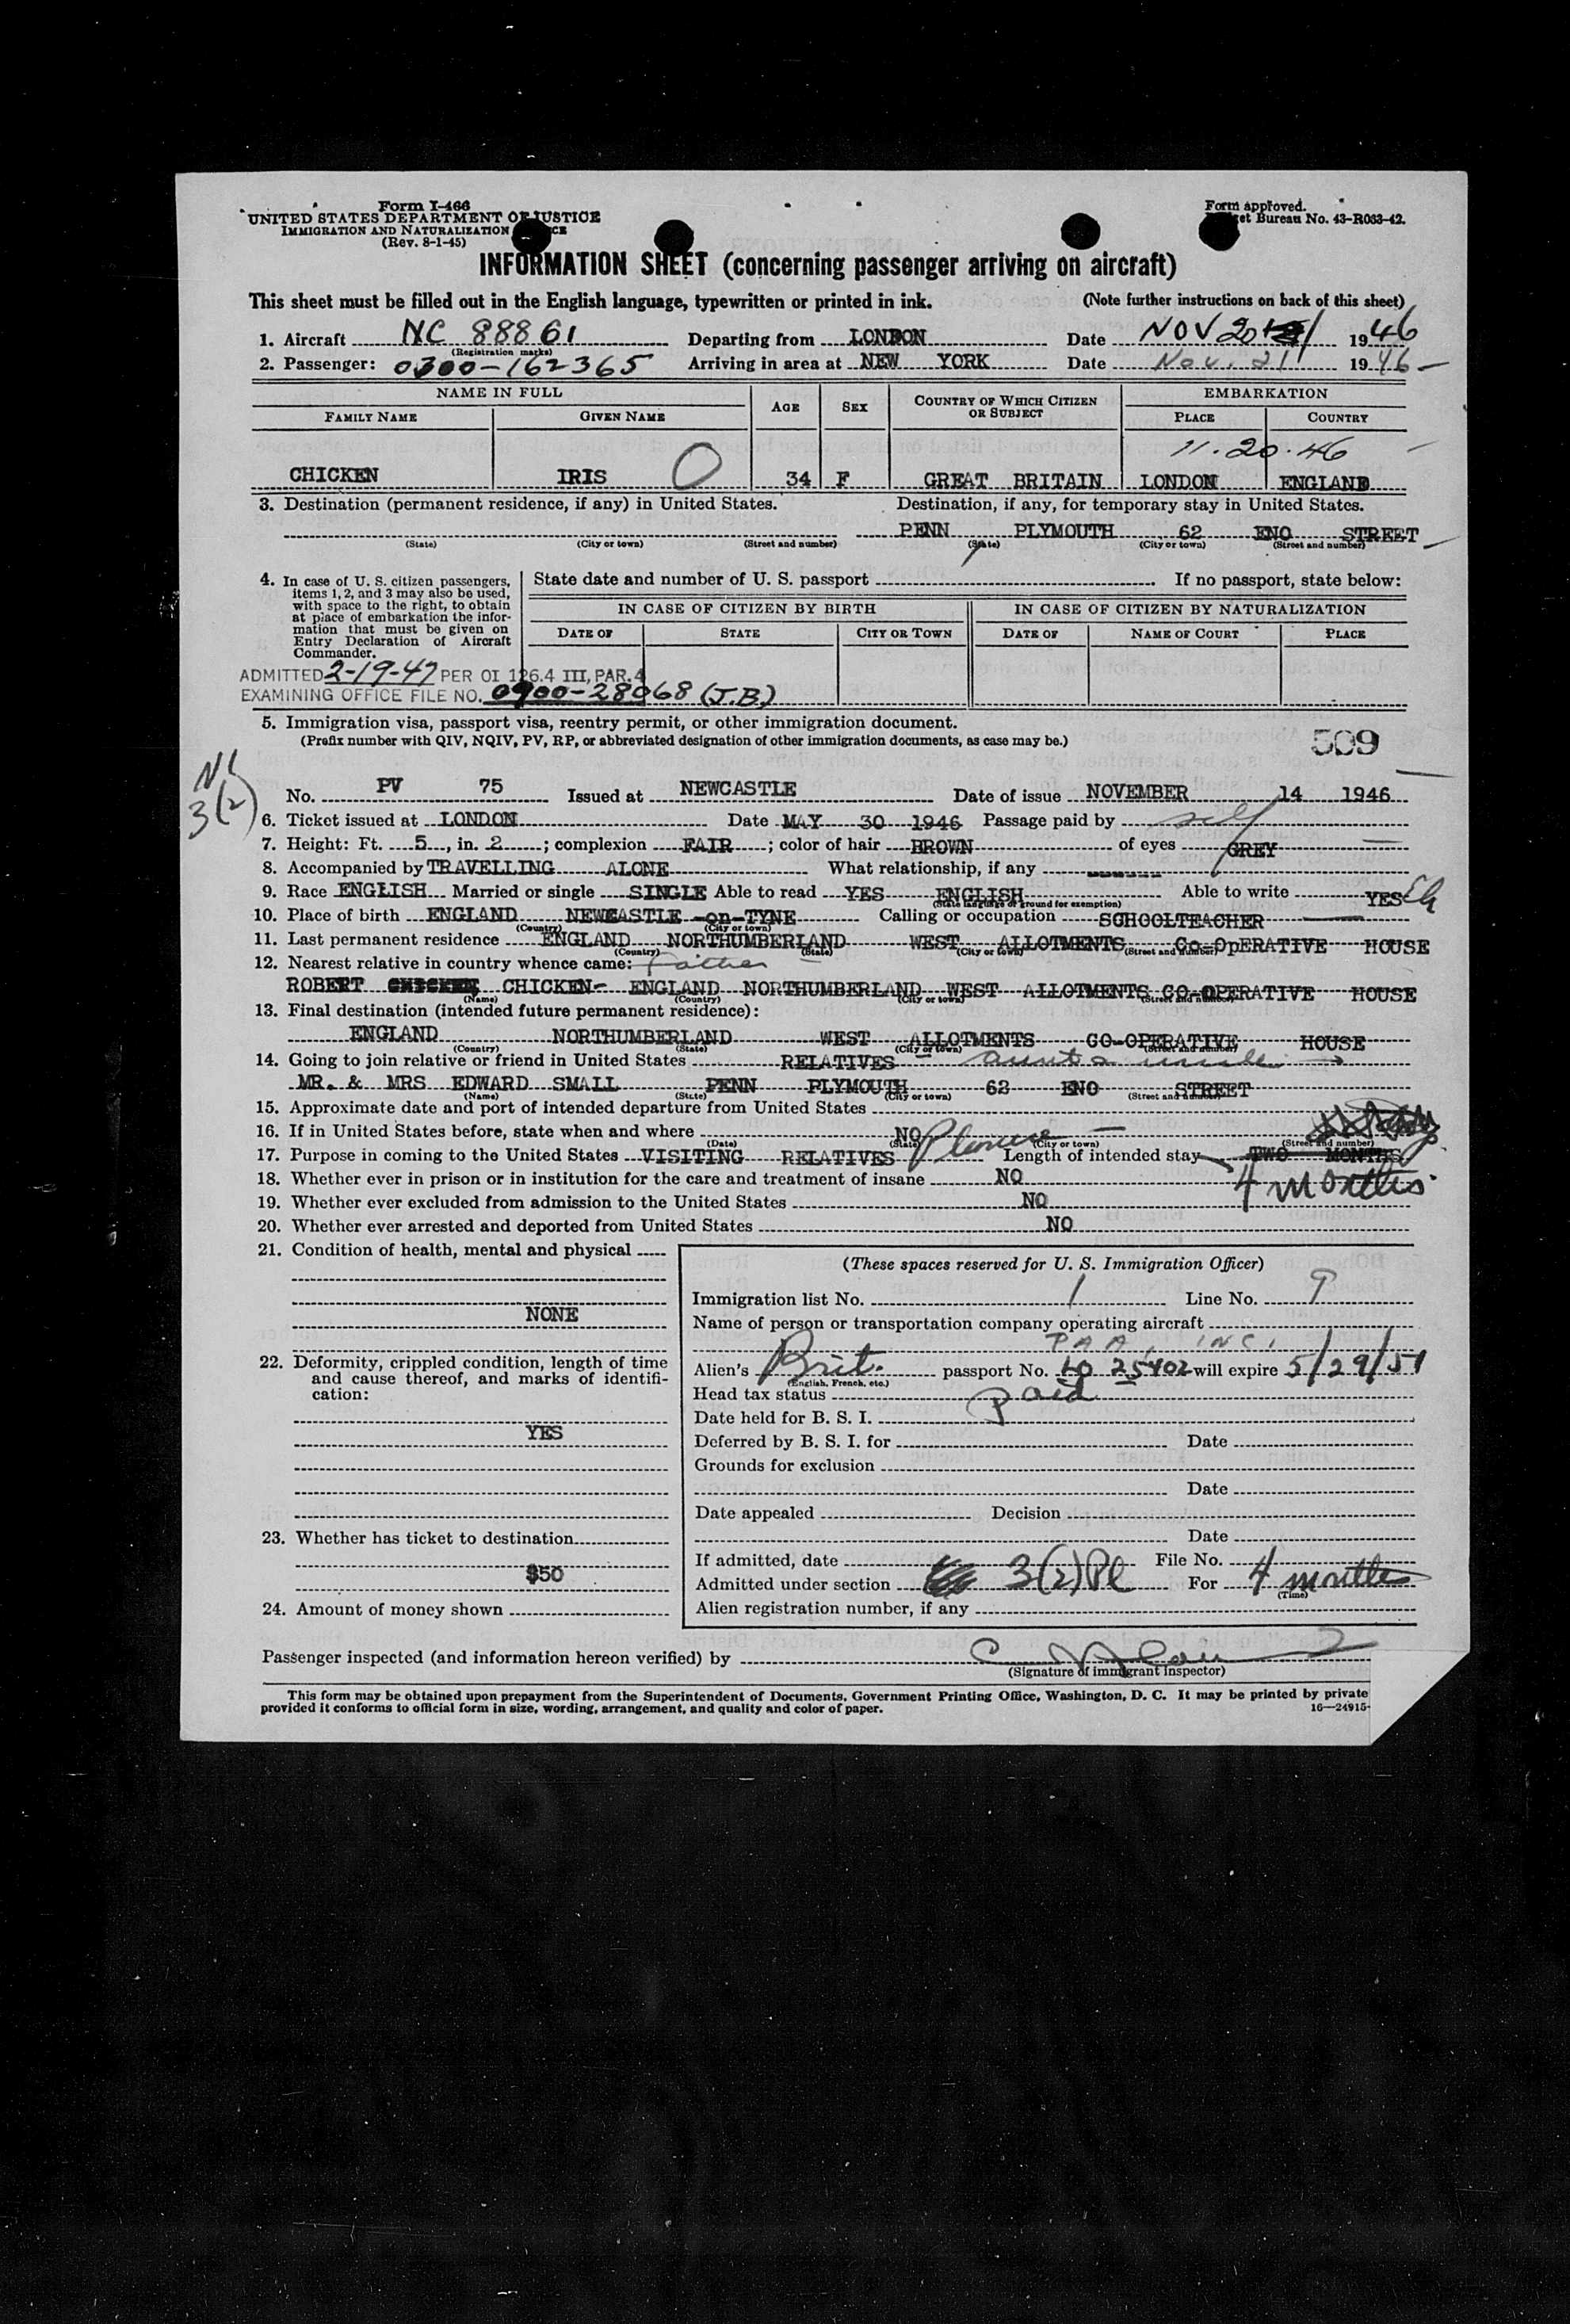 Form I-466
UNITED STATES DEPARTMENT OF JUSTICE
IMMIGRATION AND NATURALIZATION
(Rev. 8-1-45)
Form approved.
Bureau No. 43-R033-42.
INFORMATION SHEET (concerning passenger arriving on aircraft)
This sheet must be filled out in the English language, typewritten or printed in ink. (Note further instructions on back of this sheet)
1. Aircraft NC 88861 Departing from LONDON Date NOV 20 1946
(Registration marks)
2. Passenger: 0300-162365 Arriving in area at NEW YORK Date Nov. 21 1946
NAME IN FULL AGE SEX COUNTRY OF WHICH CITIZEN OR SUBJECT EMBARKATION
FAMILY NAME GIVEN NAME PLACE COUNTRY
11.20.46
CHICKEN IRIS 34 F GREAT BRITAIN LONDON ENGLAND
3. Destination (permanent residence, if any) in United States. Destination, if any, for temporary stay in United States.
PENN PLYMOUTH 62 ENO STREET
(State) (City or town) (Street and number) (State) (City or town) (Street and number)
4. In case of U. S. citizen passengers, items 1, 2, and 3 may also be used, with space to the right, to obtain at place of embarkation the information that must be given on Entry Declaration of Aircraft Commander.
State date and number of U. S. passport If no passport, state below:
IN CASE OF CITIZEN BY BIRTH IN CASE OF CITIZEN BY NATURALIZATION
DATE OF STATE CITY OR TOWN DATE OF NAME OF COURT PLACE
ADMITTED 2-19-47 PER OI 126.4 III, PAR. 4
EXAMINING OFFICE FILE NO. 0900-28068 (J.B.)
5. Immigration visa, passport visa, reentry permit, or other immigration document.
(Prefix number with QIV, NQIV, PV, RP, or abbreviated designation of other immigration documents, as case may be.)
509
3(2)
No. PV 75 Issued at NEWCASTLE Date of issue NOVEMBER 14 1946
6. Ticket issued at LONDON Date MAY 30 1946 Passage paid by self
7. Height: Ft. 5, in. 2; complexion FAIR; color of hair BROWN of eyes GREY
8. Accompanied by TRAVELLING ALONE What relationship, if any
9. Race ENGLISH Married or single SINGLE Able to read YES ENGLISH Able to write YES
(State language or ground for exemption)
10. Place of birth ENGLAND NEWCASTLE-on-TYNE Calling or occupation SCHOOLTEACHER
(Country) (City or town)
11. Last permanent residence ENGLAND NORTHUMBERLAND WEST ALLOTMENTS CO-OpERATIVE HOUSE
(Country) (State) (City or town) (Street and number)
12. Nearest relative in country whence came: Father
ROBERT CHICKEN CHICKEN- ENGLAND NORTHUMBERLAND WEST ALLOTMENTS CO-OPERATIVE HOUSE
(Name) (Country) (City or town) (Street and number)
13. Final destination (intended future permanent residence):
ENGLAND NORTHUMBERLAND WEST ALLOTMENTS CO-OPERATIVE HOUSE
(Country) (State) (City or town) (Street and number)
14. Going to join relative or friend in United States RELATIVES aunt & uncle
MR. & MRS EDWARD SMALL PENN PLYMOUTH 62 ENO STREET
(Name) (State) (City or town) (Street and number)
15. Approximate date and port of intended departure from United States
16. If in United States before, state when and where NO
(Date) (State) (City or town) (Street and number)
17. Purpose in coming to the United States VISITING RELATIVES Length of intended stay TWO MONTHS
4 months
18. Whether ever in prison or in institution for the care and treatment of insane NO
19. Whether ever excluded from admission to the United States NO
20. Whether ever arrested and deported from United States NO
21. Condition of health, mental and physical
NONE
22. Deformity, crippled condition, length of time and cause thereof, and marks of identification:
YES
23. Whether has ticket to destination
$50
24. Amount of money shown
(These spaces reserved for U. S. Immigration Officer)
Immigration list No. 1 Line No. 9
Name of person or transportation company operating aircraft
PAA, INC.
Alien's Brit. passport No. LO 25402 will expire 5/29/51
(English, French, etc.)
Head tax status Paid
Date held for B. S. I.
Deferred by B. S. I. for Date
Grounds for exclusion
Date
Date appealed Decision
Date
If admitted, date File No.
Admitted under section 3(2)Pl For 4 months
(Time)
Alien registration number, if any
Passenger inspected (and information hereon verified) by
(Signature of immigrant inspector)
This form may be obtained upon prepayment from the Superintendent of Documents, Government Printing Office, Washington, D. C. It may be printed by private
provided it conforms to official form in size, wording, arrangement, and quality and color of paper. 16—24915-